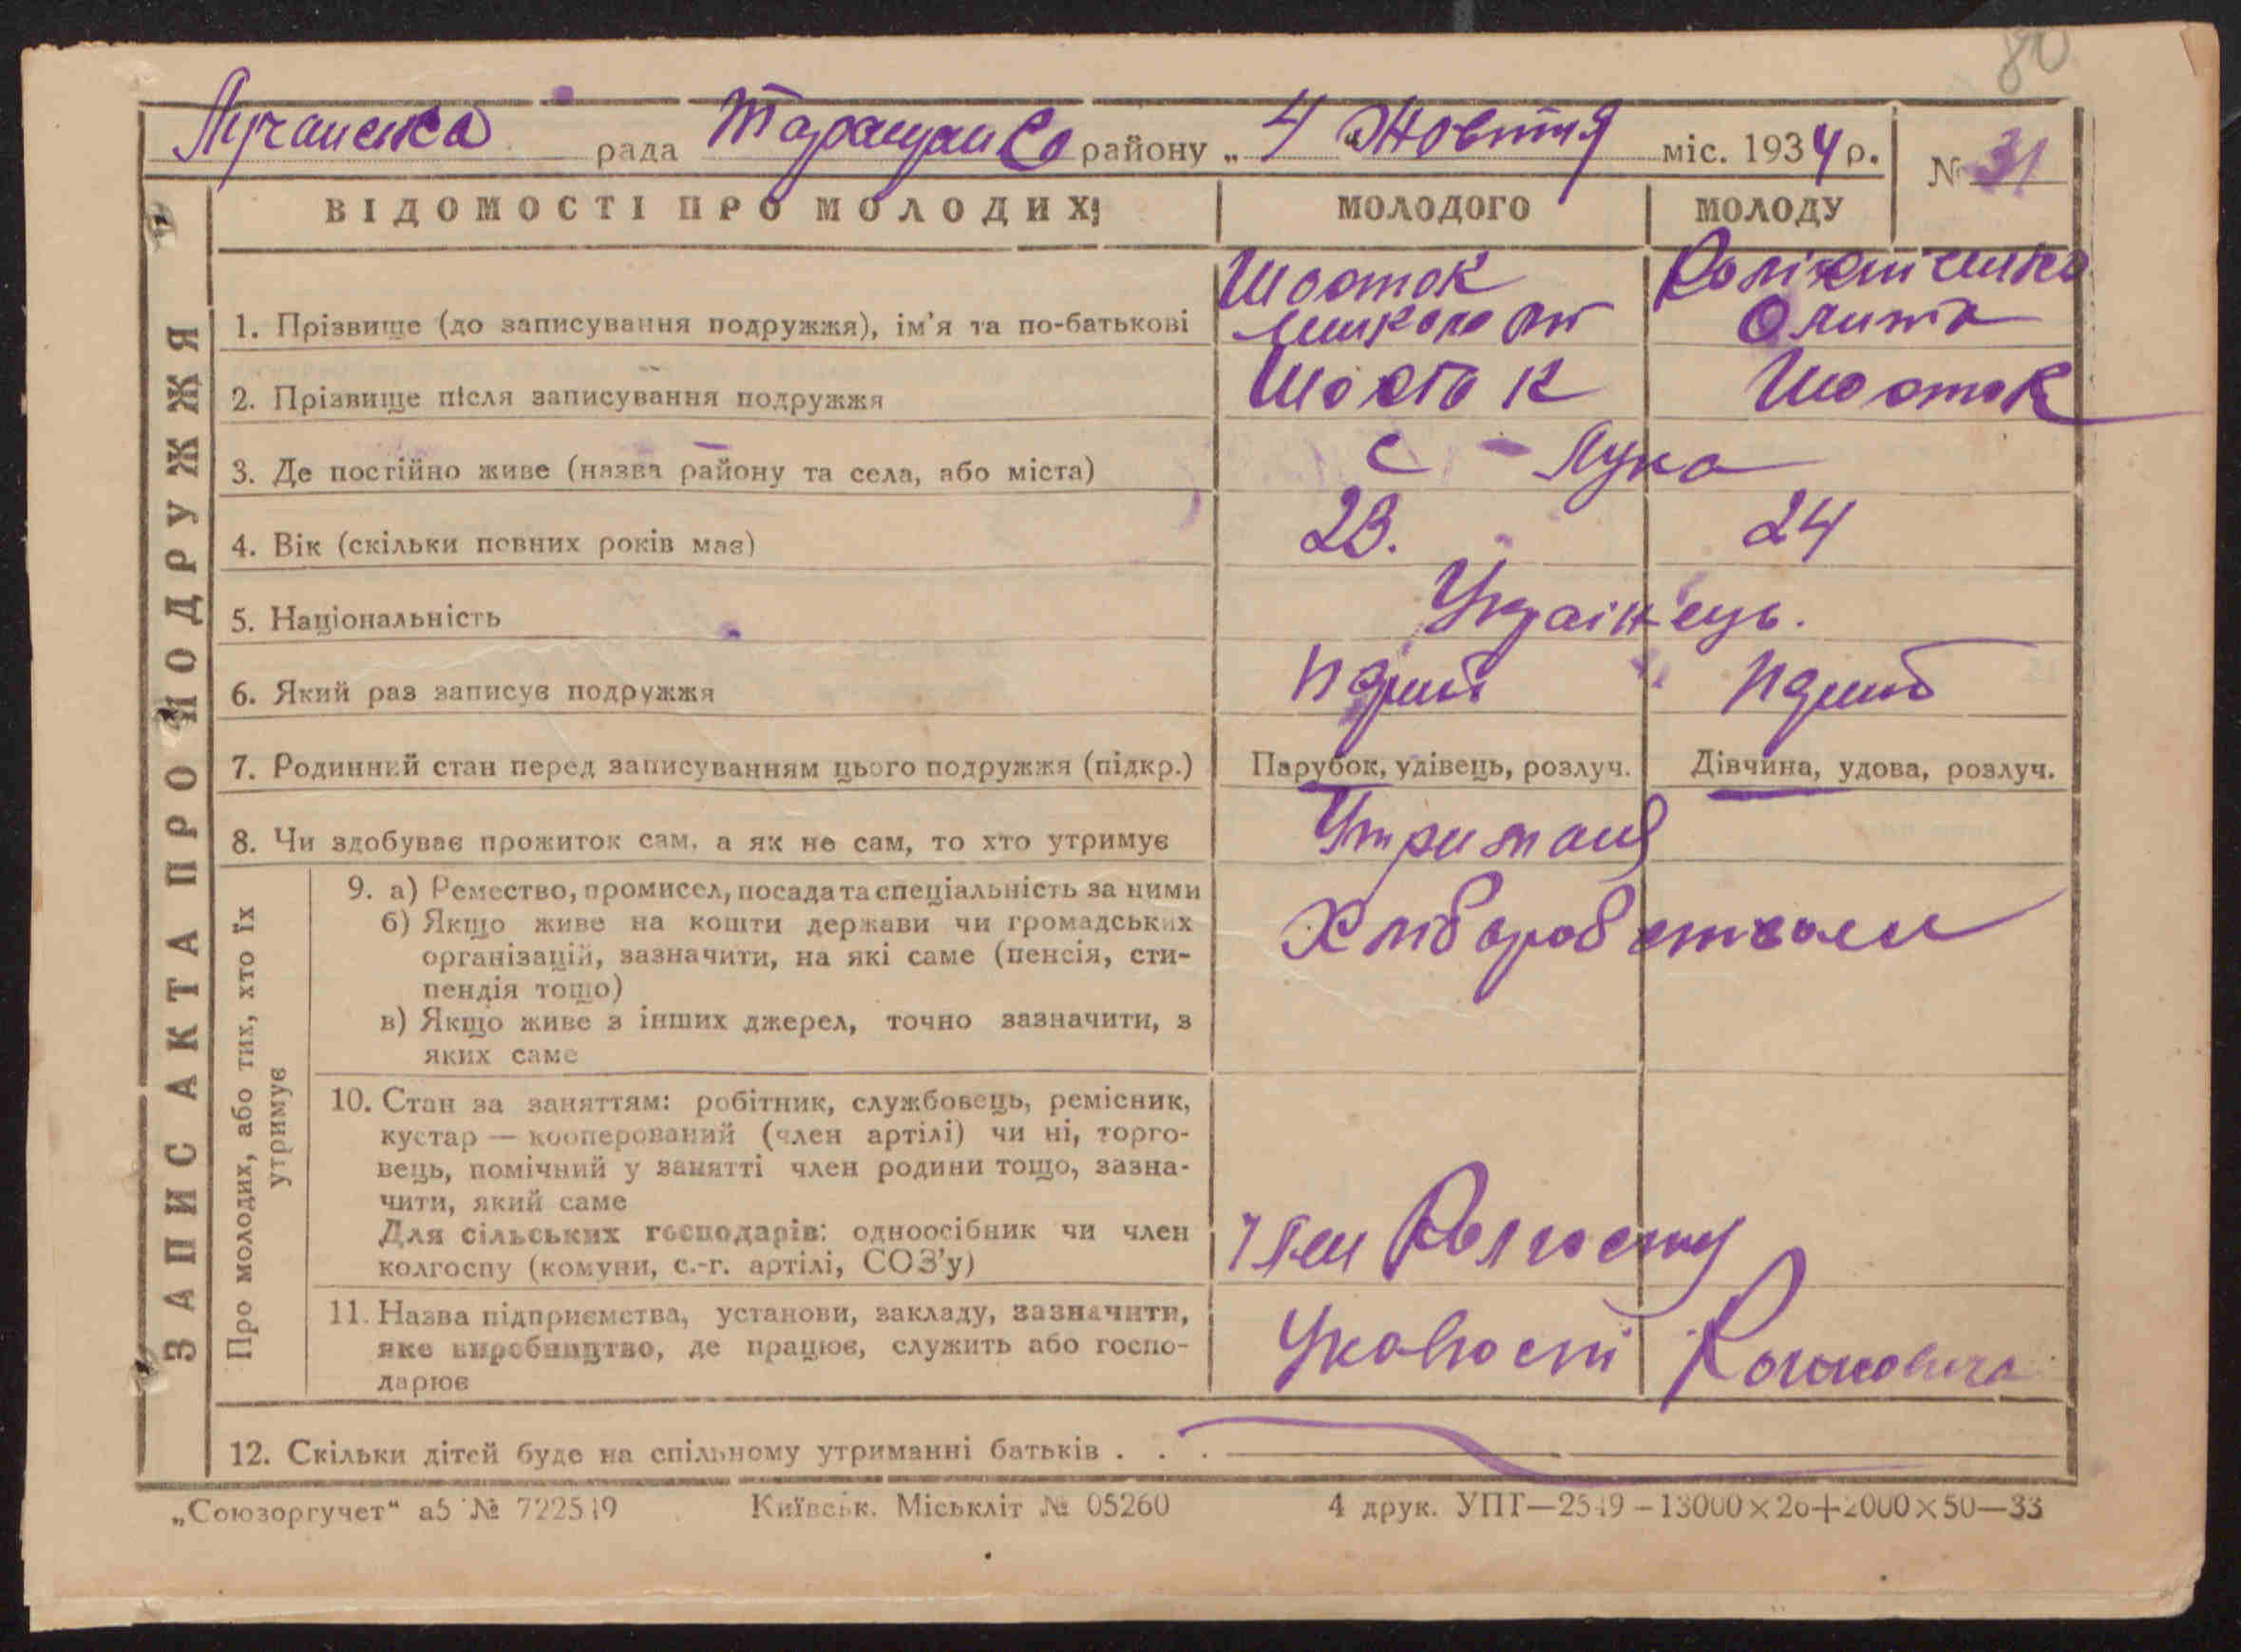 80
Лучанська рада Таращансько району „ 4 " Жовтня міс. 1934 р. № 31
ЗАПИС АКТА ПРО ПОДРУЖЖЯ
ВІДОМОСТІ ПРО МОЛОДИХ; МОЛОДОГО МОЛОДУ
1. Прізвище (до записування подружжя), ім'я та по-батькові Шосток
2. Прізвище після записування подружжя Шосток Шосток
3. Де постійно живе (назва району та села, або міста) с - Лука
4. Вік (скільки повних років має) 23. 24
5. Національність Українець.
6. Який раз записує подружжя
7. Родинний стан перед записуванням цього подружжя (підкр.) Парубок, удівець, розлуч. Дівчина, удова, розлуч.
8. Чи здобуває прожиток сам, а як не сам, то хто утримує
Про молодих, або тих, хто їх
утримує
9. а) Ремество, промисел, посада та спеціальність за ними
б) Якщо живе на кошти держави чи громадських
організацій, зазначити, на які саме (пенсія, сти-
пендія тощо)
в) Якщо живе з інших джерел, точно зазначити, з
яких саме
Хліборобством
10. Стан за заняттям: робітник, службовець, ремісник,
кустар — кооперований (член артілі) чи ні, торго-
вець, помічний у занятті член родини тощо, зазна-
чити, який саме
Для сільських господарів: одноосібник чи член
колгоспу (комуни, с.-г. артілі, СОЗ'у)
член Колгоспу
11. Назва підприємства, установи, закладу, зазначити,
яке виробництво, де працює, служить або госпо-
дарює
12. Скільки дітей буде на спільному утриманні батьків . . .
„Союзоргучет“ а5 № 722519 Київськ. Міськліт № 05260 4 друк. УПТ—2549—13000×20+2000×50—33